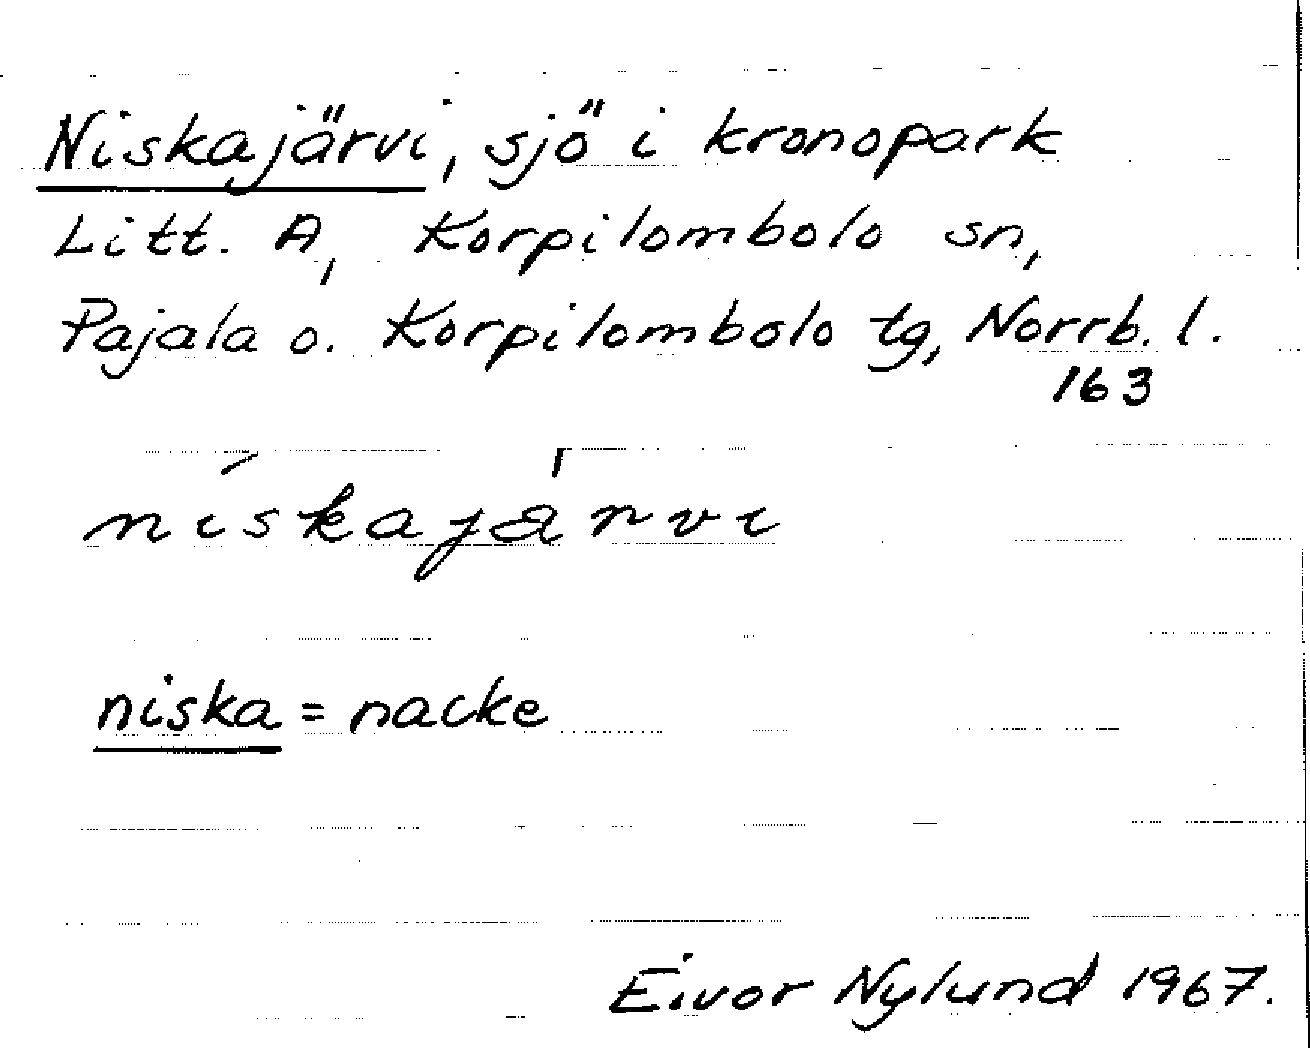 Niskajärvi, sjö i kronopark
Litt. A, Korpilombolo sn,
Pajala o. Korpilombolo tg, Norrb. l.
163
nískajärvi
niska = nacke
Eivor Nylund 1967.